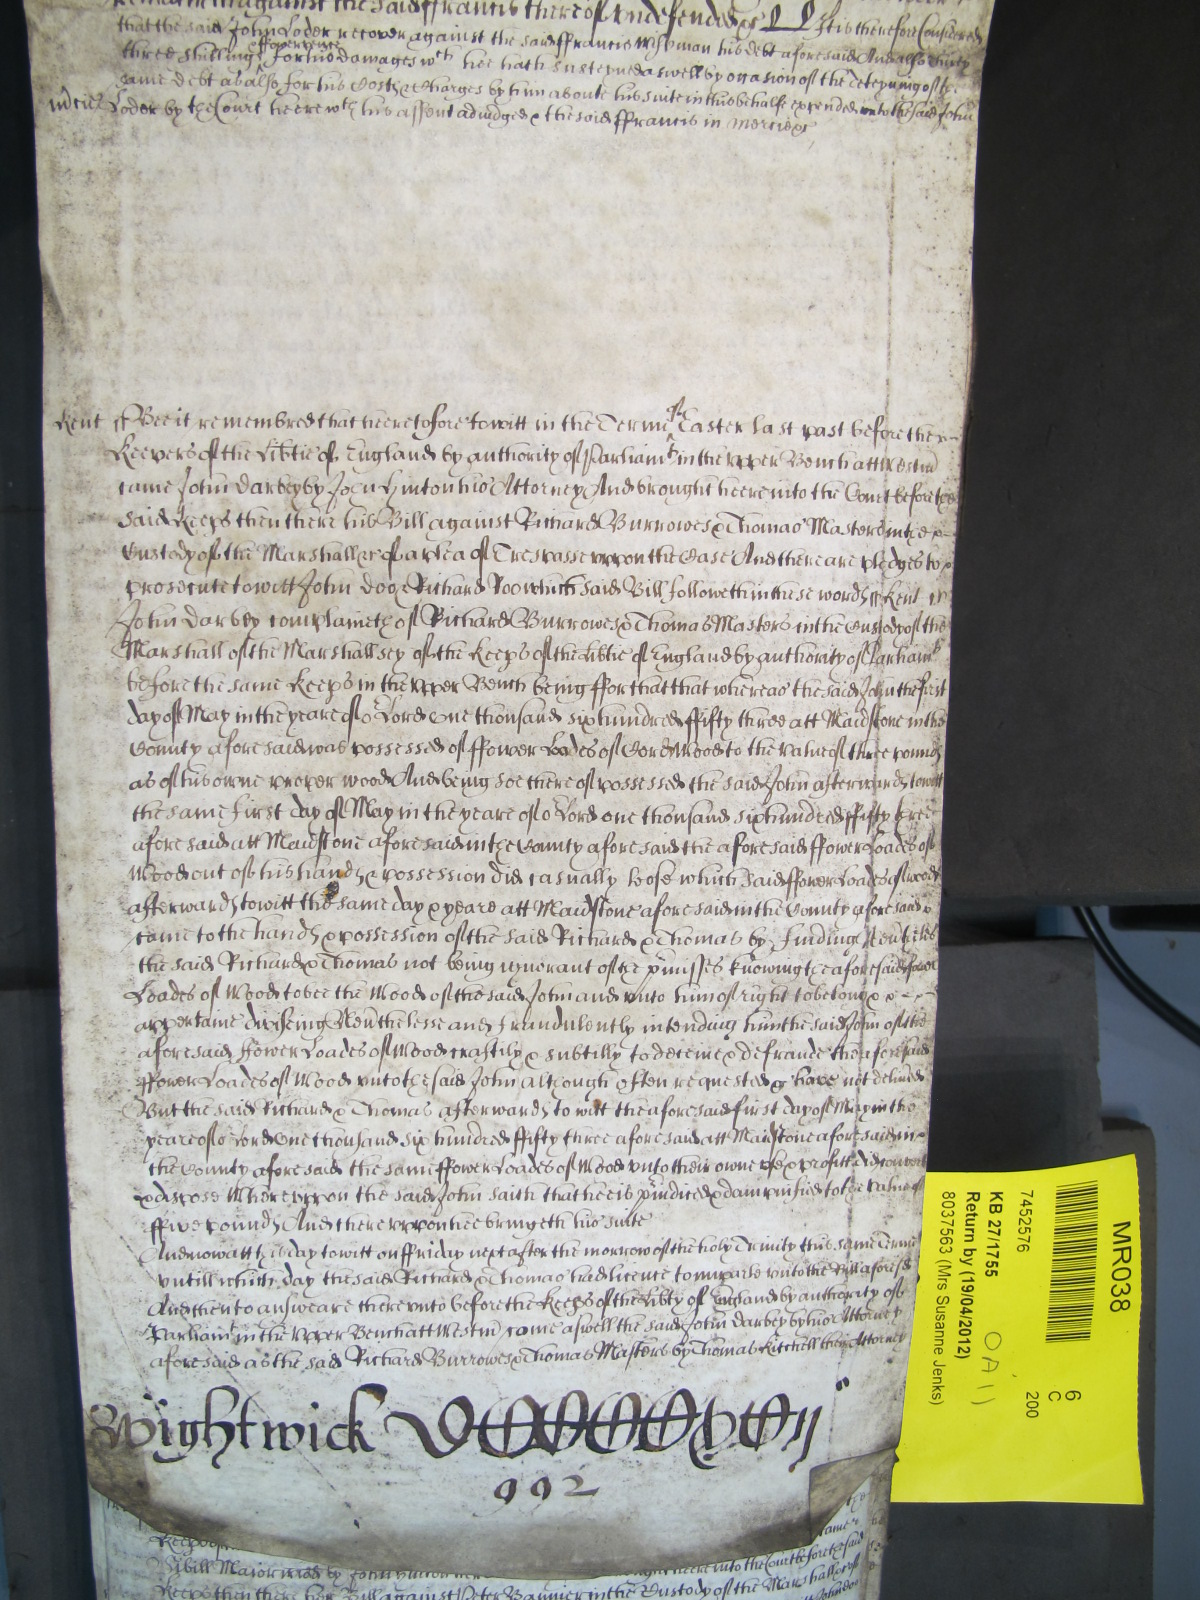 that the said John Loder recover against the said ffrancis Wiseman his debt aforesaid And also
three shillings ffower pence for his damages wch hee hath susteyned aswell by occasion of the deteyning of the
same debt as also for his Costs & Charges by him aboute his suite in this behalfe expended unto the said John
Loder by the Court heere wth his assent adiudged & the said ffrancis in mercie &c
Kent ss Bee it remembred that heeretofore to witt in the Terme of Easter last past before the
Keepers of the Libtie of England by authority of Parliamt in the Upper Bench att Westm
came John Darbey by John Hinton his Attorney And brought heere into the Court before the
said Keeps then there his Bill against Richard Burrowes & Thomas Masters in the
Custody of the Marshall &c of a plea of Trespasse uppon the Case And there are pledges to
prosecute to witt John Doo & Richard Roo which said Bill followeth in these words ss Kent ss
John Darbey complaineth of Richard Burrowes & Thomas Masters in the Custody of the
Marshall of the Marshallsey of the Keeps of the Libtie of England by authority of Parliamt
before the same Keeps in the Upper Bench being ffor that that whereas the said John the first
day of May in the yeare of or Lord one thousand six hundred ffifty three att Maidstone in the
County aforesaid was possessed of ffower Loades of Cord Wood to the value of three pounds
as of his owne proper wood And being soe thereof possessed the said John afterwards to witt
the same first day of May in the yeare of or Lord one thousand six hundred ffifty three
aforesaid att Maidstone aforesaid in the County aforesaid the aforesaid ffower Loades of
Wood out of his hands & possession did casually loose which said ffower Loades of wood
afterwards to witt the same day & yeare att Maidstone aforesaid in the County aforesaid
came to the hands & possession of the said Richard & Thomas by finding Neutheles
the said Richard & Thomas not being ignorant of the pmisses knowing the aforesaid fower
Loades of Wood to bee the Wood of the said John and unto him of right to belong &
appertaine devising Neuthelesse and fraudulently intending him the said John of the
aforesaid ffower Loades of Wood craftily & subtilly to deceive & defraude the aforesaid
ffower Loades of Wood unto the said John although often requested &c have not delivered
But the said Richard & Thomas afterwards to witt the aforesaid first day of May in the
yeare of or Lord One thousand six hundred ffifty three aforesaid att Maidstone aforesaid in
the County aforesaid the same ffower Loades of Wood unto their owne use & profitt did convert
& dispose Whereuppon the said John saith that hee is preiudiced & damnified to the value of
ffive pounds And thereuppon hee bringeth his suite
And now att this day to witt on ffriday next after the morrow of the holy Trinity this same Terme
untill which day the said Richard & Thomas had licence to imparle unto the Bill aforesd
And then to answeare thereunto before the Keeps of the Libty of England by authority of
Parliamt in the Upper Bench att Westm came aswell the said John Darbey by his Attorney
aforesaid as the said Richard Burrowes & Thomas Masters by Thomas Kitchell their Attorney
Wightwick
992
MR038
6
C
200
7452576
KB 27/1755
Return by (19/04/2012)
8037563 (Mrs Susanne Jenks)